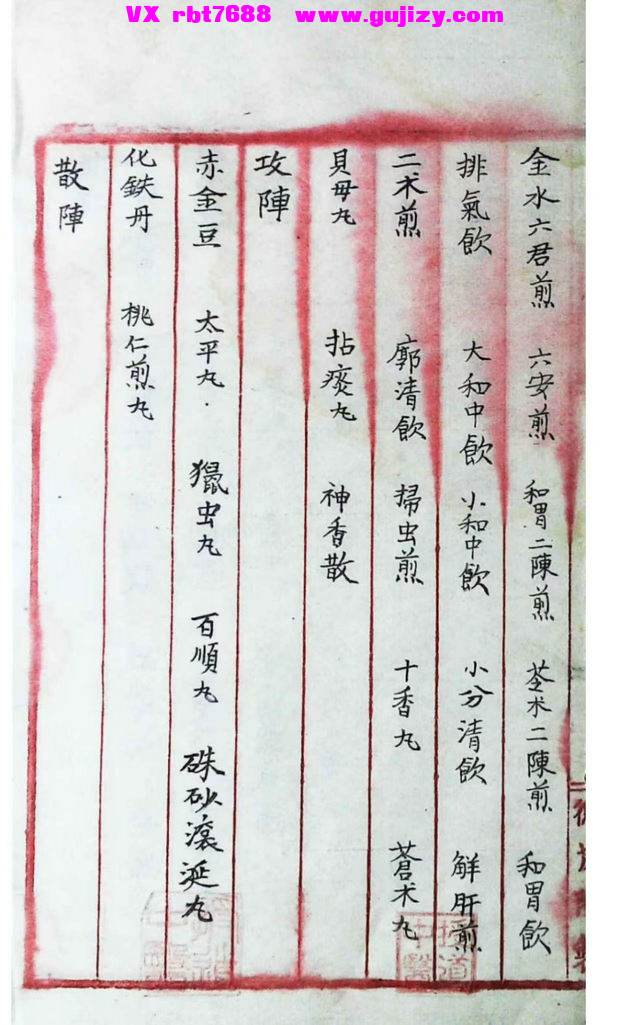 VX rbt7688 www.gujizy.com
金水六君煎 六安煎 和胃二陳煎 苓术二陳煎 和胃飲
排氣飲 大和中飲 小和中飲 小分清飲 鮮肝煎
二术煎 廓清飲 掃虫煎 十香丸 蒼术丸
貝母丸 括痰丸 神香散
攻陣
赤金豆 太平丸 獵虫丸 百順丸 硃砂滾涎丸
化鉄丹 桃仁煎丸
散陣